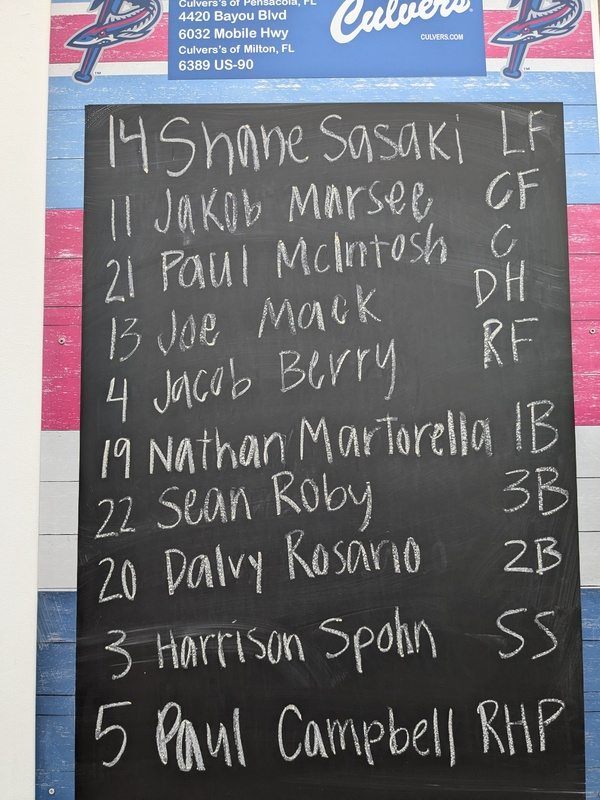 Culvers's of Pensacola, FL
4420 Bayou Blvd
6032 Mobile Hwy
Culvers's of Milton, FL
6389 US-90
Culver's
CULVERS.COM
14 Shane Sasaki LF
11 Jakob Marsee CF
21 Paul McIntosh C
13 Joe Mack DH
4 Jacob Berry RF
19 Nathan Martorella 1B
22 Sean Roby 3B
20 Dalvy Rosario 2B
3 Harrison Spohn SS
5 Paul Campbell RHP